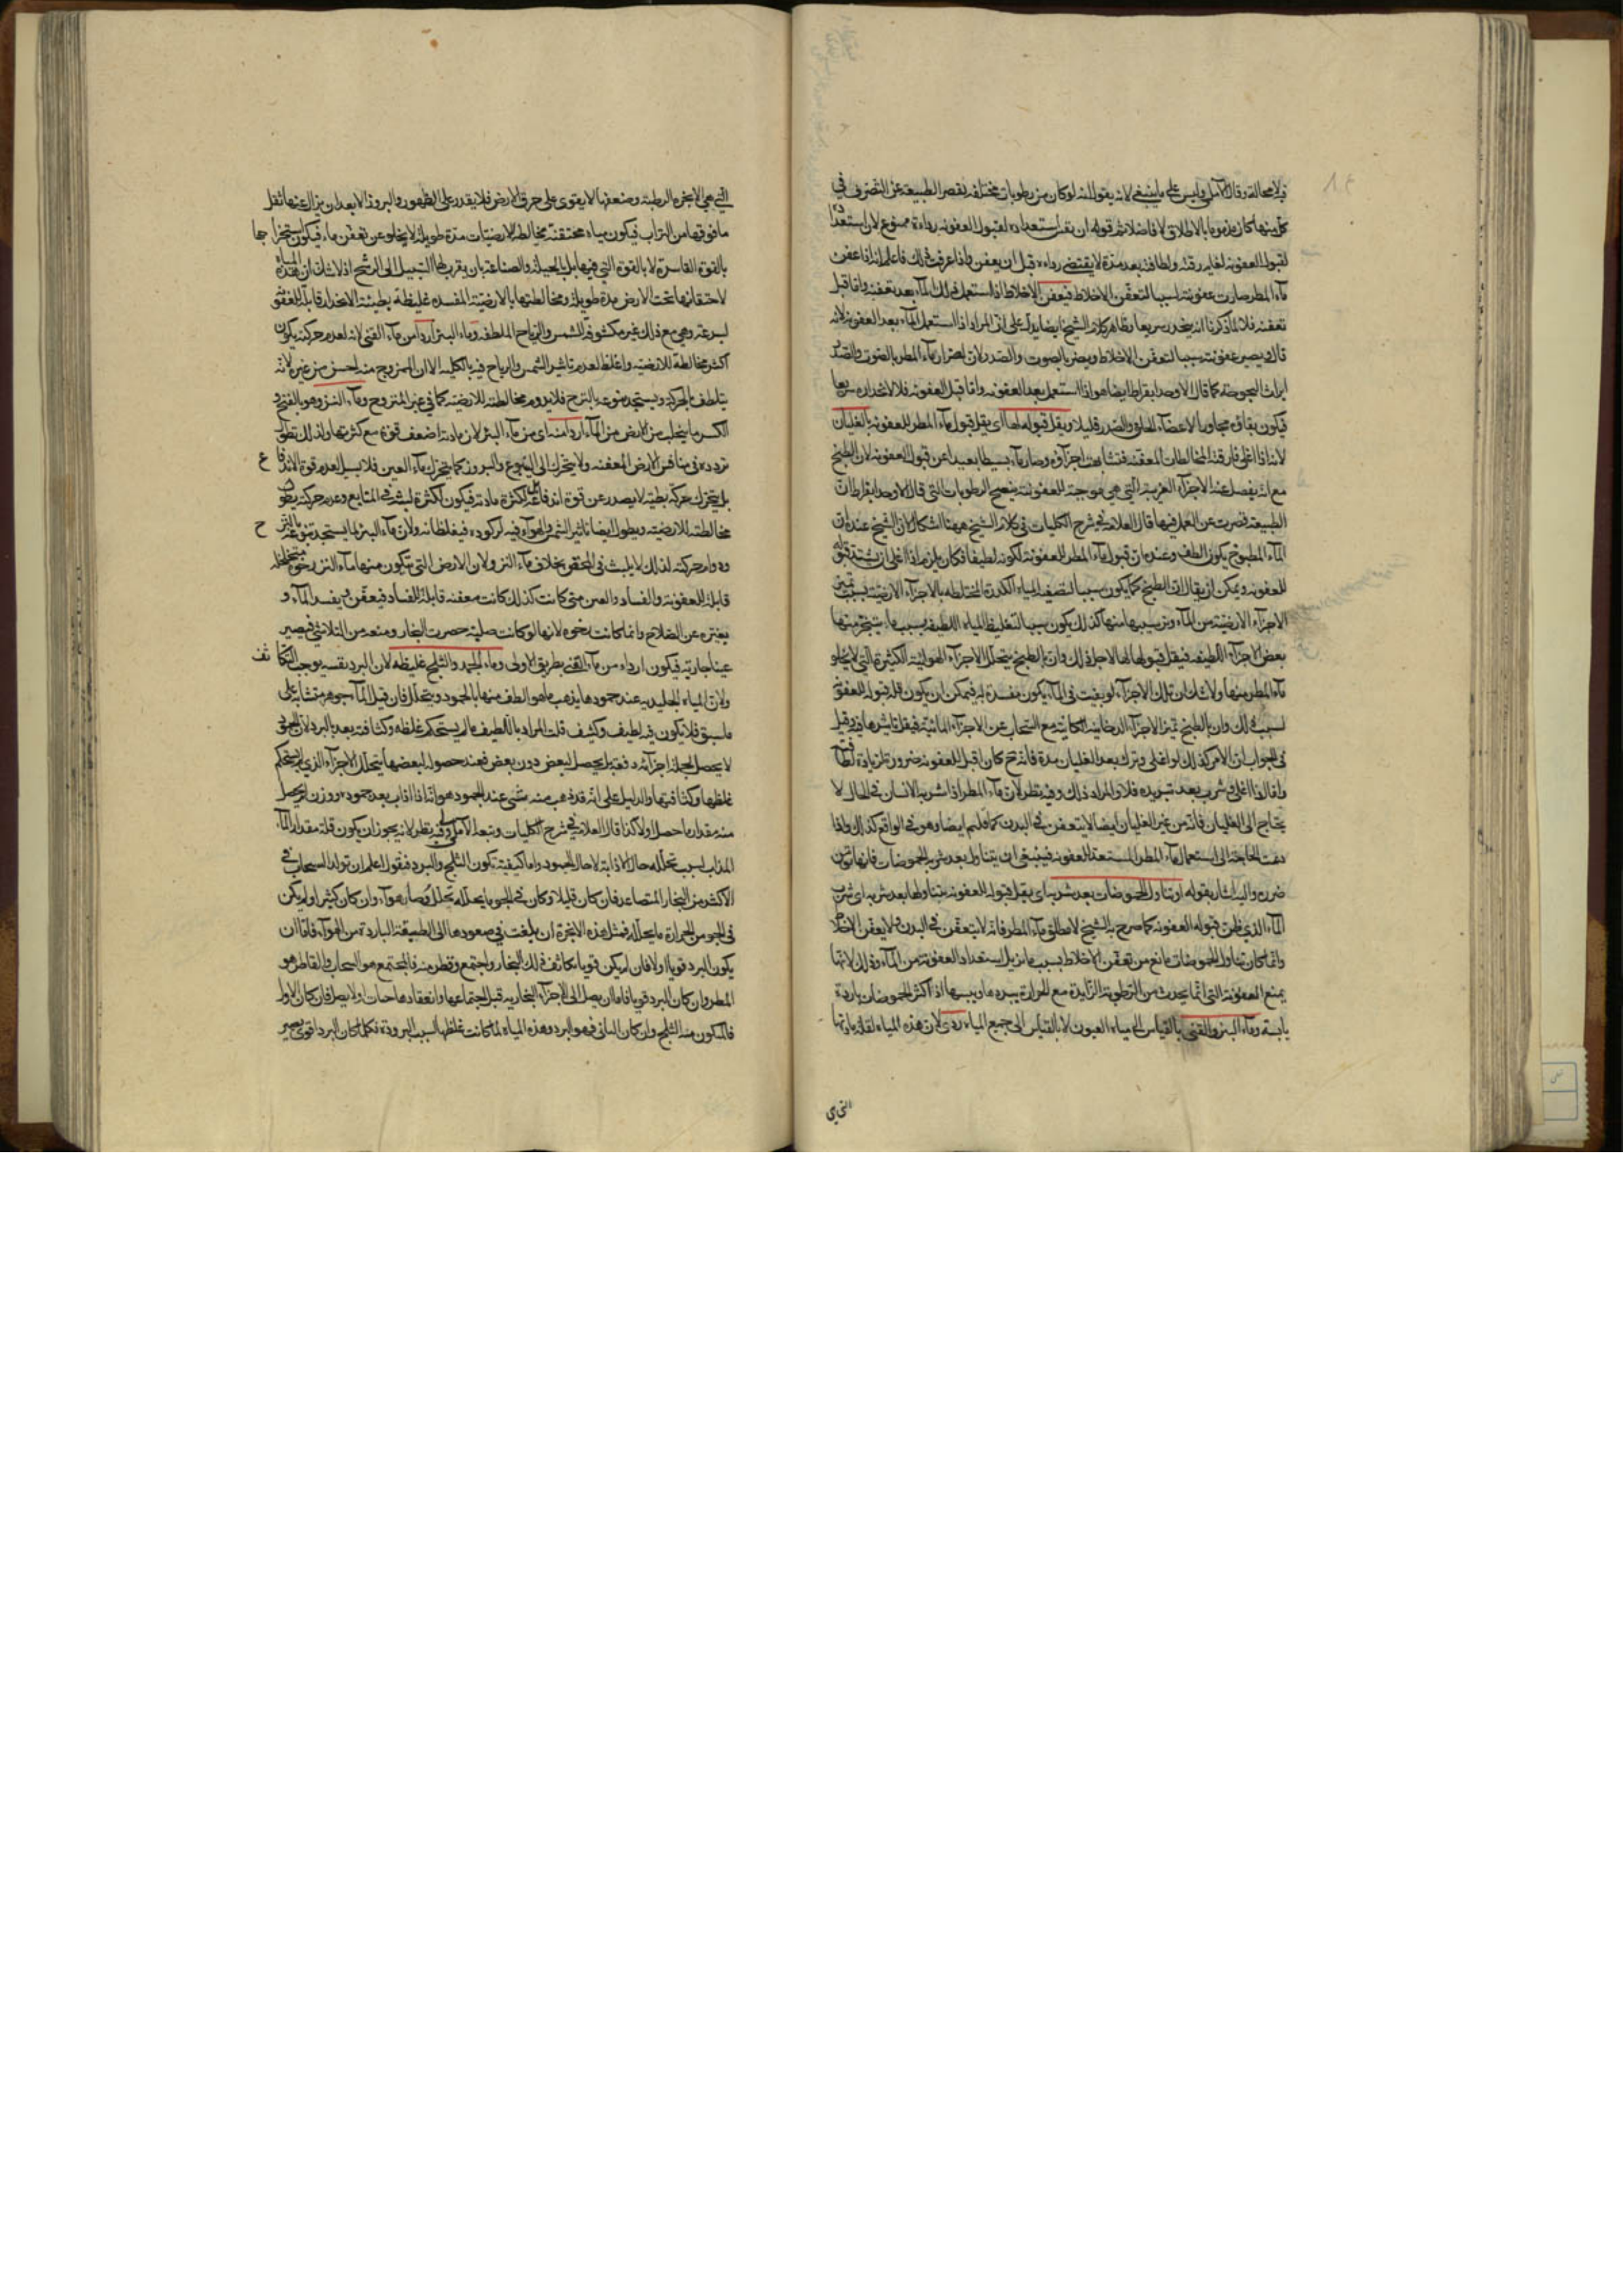 فيه لا محالة وقال الآملي وليس على ما ينبغي لانه يقول انه لو كان من رطوبات مختلفة يقصر الطبيعة عن التصرف في
كل منها كان مذموما بالاطلاق لا فاضلا ثم قوله ان يقل استعداده لقبول العفونة رداءة ممنوع لان استعداده
لقبول العفونة لغاية رقته ولطافته بعد مدة لا يقتضي رداءه قبل ان يعفن واذا عرفت ذلك فاعلم انه اذا عفن
ماء المطر صارت عفونته لسببا لتعفن الاخلاط فيعفن الاخلاط اذا استعمل ذلك الماء بعد تعفنه واما قبل
تعفنه فلا لما ذكرنا انه ينحدر سريعا وظاهر كلام الشيخ ايضا يدل على ان المراد اذا استعمل الماء بعد العفونة لانه
قال ويصير عفونته سببا لتعفن الاخلاط ويضر بالصوت والصدر لان اضرار ماء المطر بالصوت والصدر
ايراث البحوحة كما قال الاوحد ابقراط ايضا هو اذا استعمل بعد العفونة واما قبل العفونة فلا لانحداره سريعا
فيكون بقاؤه مجاورا لاعضاء الحلق والصدر قليلا ويقل قبوله لها اي يقل قبول ماء المطر للعفونة بالغليان
لانه اذا اغلي فارقته المخالطات المعفنة فتشابهت اجزاؤه وصار ماء بسيطا بعيدا عن قبول العفونة لان الطبخ
مع انه يفصل عنه الاجزاء الغريبة التي هي موجبة للعفونة ينضج الرطوبات التي قال الاوحد ابقراط ان
الطبيعة قصرت عن العمل فيها قال العلامة في شرح الكليات في كلام الشيخ ههنا اشكال لان الشيخ عنده ان
الماء المطبوخ يكون الطف وعنده ان قبول ماء المطر للعفونة لكونه لطيفا فكان يلزم اذا اغلي ان يشتد قبوله
للعفونة ويمكن ان يقال ان الطبخ كما يكون سببا لتصفية المياه الكدرة المختلطة بالاجزاء الارضية بسبب تميز
الاجزاء الارضية من الماء وترسيبها منها كذلك يكون سببا لتغليظ المياه اللطيفة بسبب ما يتبخر منها
بعض الاجزاء اللطيفة فيقل قبولها لها لاجل ذلك وان بالطبخ يتحلل الاجزاء الهوائية الكثيرة التي لا يخلو
ماء المطر منها ولا شك ان تلك الاجزاء لو بقيت في الماء يكون مفسدة له فيمكن ان يكون قلة قبوله للعفونة
لسبب ذلك وان بالطبخ تميز الاجزاء الدخانية الكاينة مع السحاب عن الاجزاء المائية فيقل تاثيرها فيه وقيل
في الجواب ان الامر كذلك لو اغلي وترك بعد الغليان مدة فانه ح كان اقبل للعفونة ضرورة زيادة لطافته
واما اذا اغلي وشرب بعد تبريده فلا والمراد ذلك وفيه نظر لان ماء المطر اذا شربه الانسان في الحال لا
يحتاج الى الغليان فانه من غير الغليان ايضا لا يتعفن في البدن كما علم ايضا وهو في الواقع كذلك واذا
دعت الحاجة الى استعمال ماء المطر المستعد للعفونة فينبغي ان يتناول بعد شربه الحموضات فانها
ضرره واليه اشار بقوله او تناول الحموضات بعد شربه اي يقل قبوله للعفونة بتناولها بعد شربه اي شرب
الماء الذي ظهرت قبوله العفونة كما صرح به الشيخ لا مطلق ماء المطر فانه لا يتعفن في البدن ولا يعفن الاخلاط
وانما كان تناول الحموضات مانع من تعفن الاخلاط بسبب ما يزيل استعداد العفونة من الماء وذلك لانها
يمنع العفونة التي انما يحدث من الرطوبة الزايدة مع الحرارة ببردها ويبسها اذ اكثر الحموضات باردة
يابسة وماء البئر والقني بالقياس الى مياه العيون لا بالقياس الى جميع المياه ردئ لان هذه المياه لقلة مادتها
التي هي
التي هي الابخرة الرطبة وضعفها لا يقوى على خرق الارض فلا يقدر على الظهور والبروز الا بعد ان يزال عنها ثقل
ما فوقها من التراب فيكون مياه محتقنة مخالطة للارضيات مدة طويلة لا يخلو عن تعفن ماء فيكون استخراجها
بالقوة القاسرة لا بالقوة التي فيها بل بالحيلة والصناعة بان يقرب لها السبيل الى الرشح اذ لا شك ان هذه المياه
لاحتقانها تحت الارض مدة طويلة ومخالطتها بالارضية المفسدة غليظة بطيئة الانحدار قابلة للعفونة
لسرعته وهي مع ذلك غير مكشوفة للشمس والرياح الملطفة وماء البئر اردأ من ماء القني لانه لعدم حركته يكون
اكثر مخالطة للارضية واغلظ لعدم تاثير الشمس والرياح فيه بالكلية الا ان المنزوح منه احسن من غيره لانه
يتلطف بالحركة ويستجد نبوعه بالنزح فلا يدوم مخالطته للارضية كما في غير المنزوح وماء النز وهو بالفتح و
الكسر ما يتحلب من الارض من الماء اردأ منه اي من ماء البئر لان مادته اضعف قوة مع كثرتها ولذلك تطول
تردده في منافس الارض المعفنة ولا يتحرك الى النبوع والبروز كما يتحرك ماء العين فلا يسيل لعدم قوة الاندفاع
بل يتحرك حركة بطيئة لا يصدر عن قوة اندفاعه بل لكثرة مادته فيكون اكثر لبثه في المنابع وعدم حركته يطول
مخالطته للارضية ويطول ايضا تاثير الشمس والهواء فيه لركوده فيغلظانه ولان ماء البئر لما يستجد نبوعه بالنزح
ودوام حركته لذلك لا يلبث في المحتقن بخلاف ماء النز ولان الارض التي تكون منها ماء النز رخوة متخلخلة
قابلة للعفونة والفساد والعين متى كانت كذلك كانت معفنة قابلة للفساد فيعفن ويفسد الماء و
يغيره عن الصلاح وانما كانت رخوة لانها لو كانت صلبة حصرت البخار ومنعه من التلاشي فيصير
عينا جارية فيكون ارداء من ماء القني بطريق الاولى وماء الجمد والثلج غليظة لان البرد نفسه يوجب التكاثف
ولان المياه الجليدية عند جمودها يذهب ما هو الطف منها بالجمود ويتحلل فان قيل الماء جوهر متشابه على
ما سبق فلا يكون فيه لطيف وكثيف قلت المراد باللطيف ما لم يستحكم غلظه وكثافته بعد بالبرد لان
لا يحصل لجملة اجزائه دفعة بل يحصل لبعض دون بعض فعند حصوله لبعضها يتحلل الاجزاء الذي لم يستحكم
غلظها وكثافتها والدليل على انه قد ذهب منه شئ عند الجمود هو انه اذا اذاب بعد جموده ووزن لم يحصل
منه مقدار ما حصل اولا كذا قال العلامة في شرح الكليات وتبعه الآملي وفيه نظر لانه يجوز ان يكون قلة مقدار الماء
المذاب لسبب تحلله حال الاذابة لا حال الجمود واما كيفية تكون الثلج والبرد فنقول اعلم ان تولد السحاب في
الاكثر من البخار المتصاعد فان كان قليلا وكان في الجو ما يحلله تحلل وصار هواء وان كان كثيرا او لم يكن
في الجو من الحرارة ما يحلله فمثل هذه الابخرة ان بلغت في صعودها الى الطبقة الباردة من الهواء فاما ان
يكون البرد قويا اولا فان لم يكن قويا تكاثف ذلك البخار واجتمع وقطر منه فالمجتمع هو السحاب والقاطر هو
المطر وان كان البرد قويا فاما ان يصل الى الاجزاء البخارية قبل اجتماعها وانعقادها حبات ولا يصل فان كان الاول
فالمكون منه الثلج وان كان الثاني فهو البرد وهذه المياه لما كانت غلظها لسبب البرودة فكلما كان البرد اقوى يصير